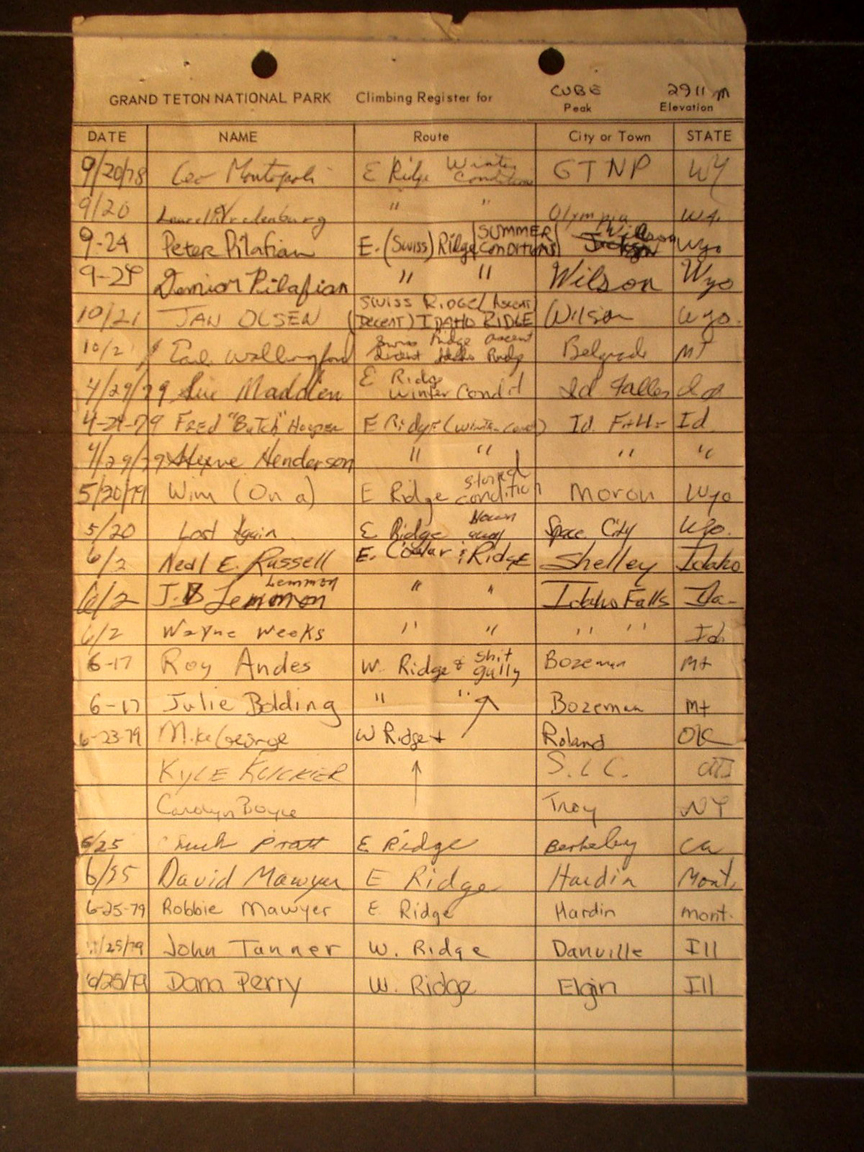 CUBE 2911 m
GRAND TETON NATIONAL PARK Climbing Register for Peak Elevation
DATE NAME Route City or Town STATE
9/20/78 Leo Montopoli E Ridge Winter Conditions GTNP WY
9/20 " " Olympia Wa.
9-24 Peter Pilafian E. (Swiss) Ridge (SUMMER CONDITIONS) Wilson Wyo
9-24 Damion Pilafian " " Wilson Wyo
10/21 JAN OLSEN SWISS RIDGE (ASCENT) (DECENT) IDAHO RIDGE Wilson Wyo.
10/21 Earl Wallingford Swiss Ridge ascent decent Idaho Ridge Belgrade MT
4/29/79 Sue Madden E Ridge Winter Condit Id Falles Ida
4-29-79 FRED "Butch" Hooper E Ridge (Winter Cond) Id. Falls Id.
4/29/79 Steve Henderson " " " "
5/20/79 Wim (On a) E Ridge stoned condition Moron Wyo
5/20 Lost Again E Ridge away Space City Wyo.
6/2 Neal E. Russell E. Coular & Ridge Shelley Idaho
6/2 J.D Lemmon Lemmon " " Idaho Falls Ida-
6/2 Wayne Weeks " " " " Id.
6-17 Roy Andes W. Ridge & shit gully Bozeman Mt
6-17 Julie Bolding " " Bozeman Mt
6-23-79 Mike George W Ridge + Roland OK
KYLE S.L.C.
Carolyn Boyce Troy NY
6/25 Chuck Pratt E Ridge Berkeley Ca
6/25 David Mawyer E Ridge Hardin Mont.
6-25-79 Robbie Mawyer E Ridge Hardin mont.
6/25/79 John Tanner W. Ridge Danville Ill
6/25/79 Dana Perry W. Ridge Elgin Ill